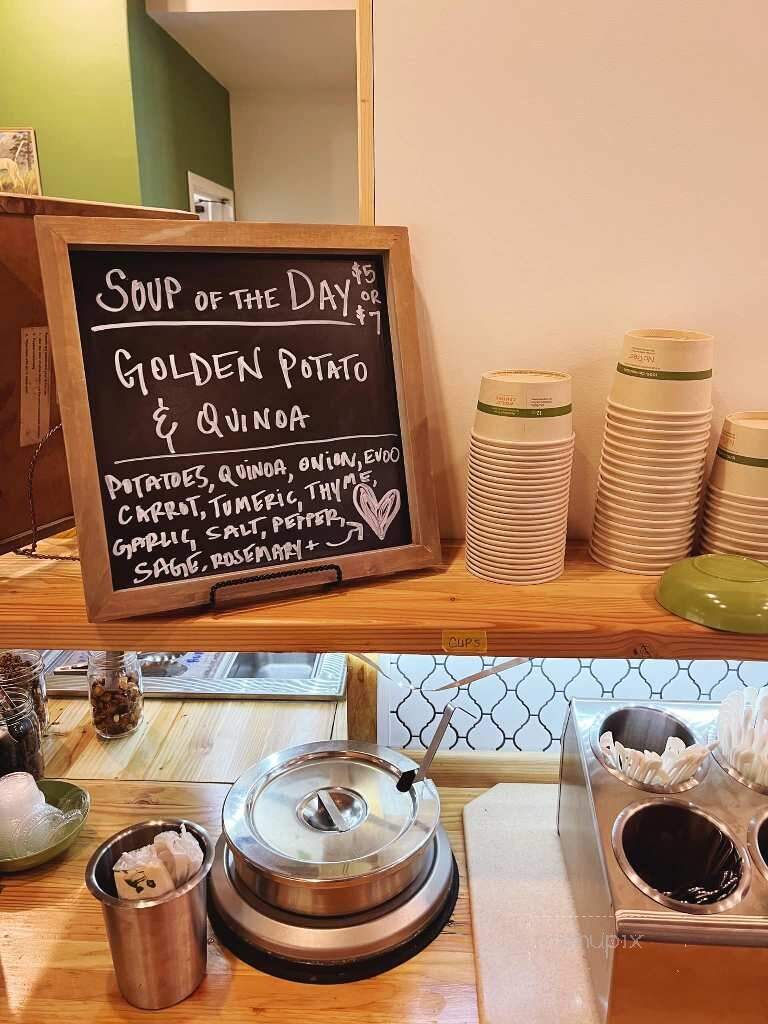 SOUP OF THE DAY $5
OR
$7
GOLDEN POTATO
& QUINOA
POTATOES, QUINOA, ONION, EVOO
CARROT, TUMERIC, THYME,
GARLIC, SALT, PEPPER,
SAGE, ROSEMARY +
CUPS
12